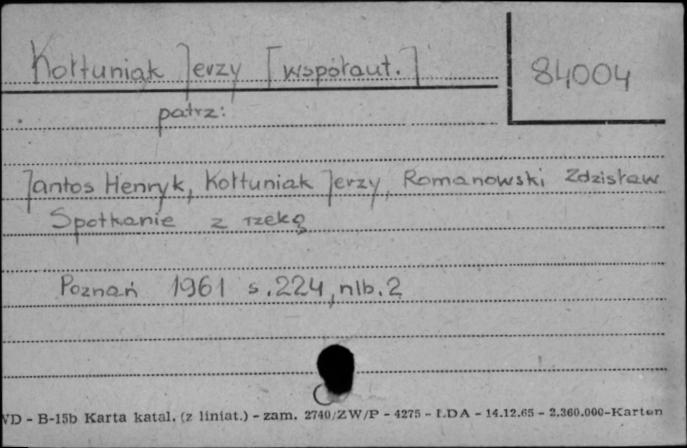 Kołtuniak Jerzy [współaut.]
84004
patrz:
Jantos Henryk, Kołtuniak Jerzy, Romanowski Zdzisław
Spotkanie z rzeką
Poznań 1961 s.224, nlb.2
WD - B-15b Karta katal. (z liniat.) - zam. 2740/ZW/P - 4275 - LDA - 14.12.65 - 2.360.000-Karton